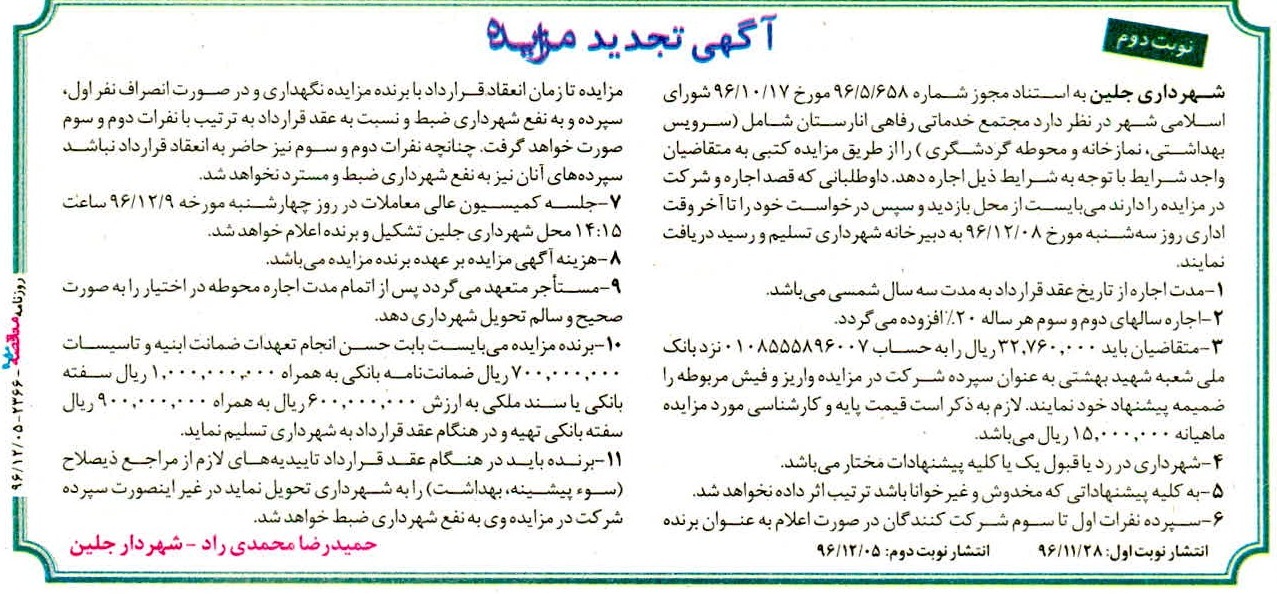 آگهی تجدید مزایده
نوبت دوم
شهرداری جلین به استناد مجوز شماره ۹۶/۵/۶۵۸ مورخ ۹۶/۱۰/۱۷ شورای
اسلامی شهر در نظر دارد مجتمع خدماتی رفاهی انارستان شامل (سرویس
بهداشتی، نمازخانه و محوطه گردشگری ) را از طریق مزایده کتبی به متقاضیان
واجد شرایط با توجه به شرایط ذیل اجاره دهد. داوطلبانی که قصد اجاره و شرکت
در مزایده را دارند می‌بایست از محل بازدید و سپس درخواست خود را تا آخر وقت
اداری روز سه‌شنبه مورخ ۹۶/۱۲/۰۸ به دبیرخانه شهرداری تسلیم و رسید دریافت
نمایند.
۱-مدت اجاره از تاریخ عقد قرارداد به مدت سه سال شمسی می‌باشد.
۲-اجاره سالهای دوم و سوم هر ساله ۲۰٪ افزوده می گردد.
۳-متقاضیان باید ۳۲,۷۶۰,۰۰۰ ریال را به حساب ۰۱۰۸۵۵۵۸۹۶۰۰۷ نزد بانک
ملی شعبه شهید بهشتی به عنوان سپرده شرکت در مزایده واریز و فیش مربوطه را
ضمیمه پیشنهاد خود نمایند. لازم به ذکر است قیمت پایه و کارشناسی مورد مزایده
ماهیانه ۱۵,۰۰۰,۰۰۰ ریال می‌باشد.
۴-شهرداری در رد یا قبول یک یا کلیه پیشنهادات مختار می‌باشد.
۵-به کلیه پیشنهاداتی که مخدوش و غیر خوانا باشد ترتیب اثر داده نخواهد شد.
۶-سپرده نفرات اول تا سوم شرکت کنندگان در صورت اعلام به عنوان برنده
انتشار نوبت اول: ۹۶/۱۱/۲۸ انتشار نوبت دوم: ۹۶/۱۲/۰۵
مزایده تا زمان انعقاد قرارداد با برنده مزایده نگهداری و در صورت انصراف نفر اول،
سپرده و به نفع شهرداری ضبط و نسبت به عقد قرارداد به ترتیب با نفرات دوم و سوم
صورت خواهد گرفت. چنانچه نفرات دوم و سوم نیز حاضر به انعقاد قرارداد نباشد
سپرده‌های آنان نیز به نفع شهرداری ضبط و مسترد نخواهد شد.
۷-جلسه کمیسیون عالی معاملات در روز چهارشنبه مورخه ۹۶/۱۲/۹ ساعت
۱۴:۱۵ محل شهرداری جلین تشکیل و برنده اعلام خواهد شد.
۸-هزینه آگهی مزایده بر عهده برنده مزایده می‌باشد.
۹-مستأجر متعهد می گردد پس از اتمام مدت اجاره محوطه در اختیار را به صورت
صحیح و سالم تحویل شهرداری دهد.
۱۰-برنده مزایده می‌بایست بابت حسن انجام تعهدات ضمانت ابنیه و تاسیسات
۷۰۰,۰۰۰,۰۰۰ ریال ضمانت‌نامه بانکی به همراه ۱,۰۰۰,۰۰۰,۰۰۰ ریال سفته
بانکی یا سند ملکی به ارزش ۶۰۰,۰۰۰,۰۰۰ ریال به همراه ۹۰۰,۰۰۰,۰۰۰ ریال
سفته بانکی تهیه و در هنگام عقد قرارداد به شهرداری تسلیم نماید.
۱۱-برنده باید در هنگام عقد قرارداد تاییدیه‌های لازم از مراجع ذیصلاح
(سوء پیشینه، بهداشت) را به شهرداری تحویل نماید در غیر اینصورت سپرده
شرکت در مزایده وی به نفع شهرداری ضبط خواهد شد.
حمیدرضا محمدی راد - شهردار جلین
روزنامه مناقصه مزایده - ۲۳۶۶ - ۹۶/۱۲/۰۵